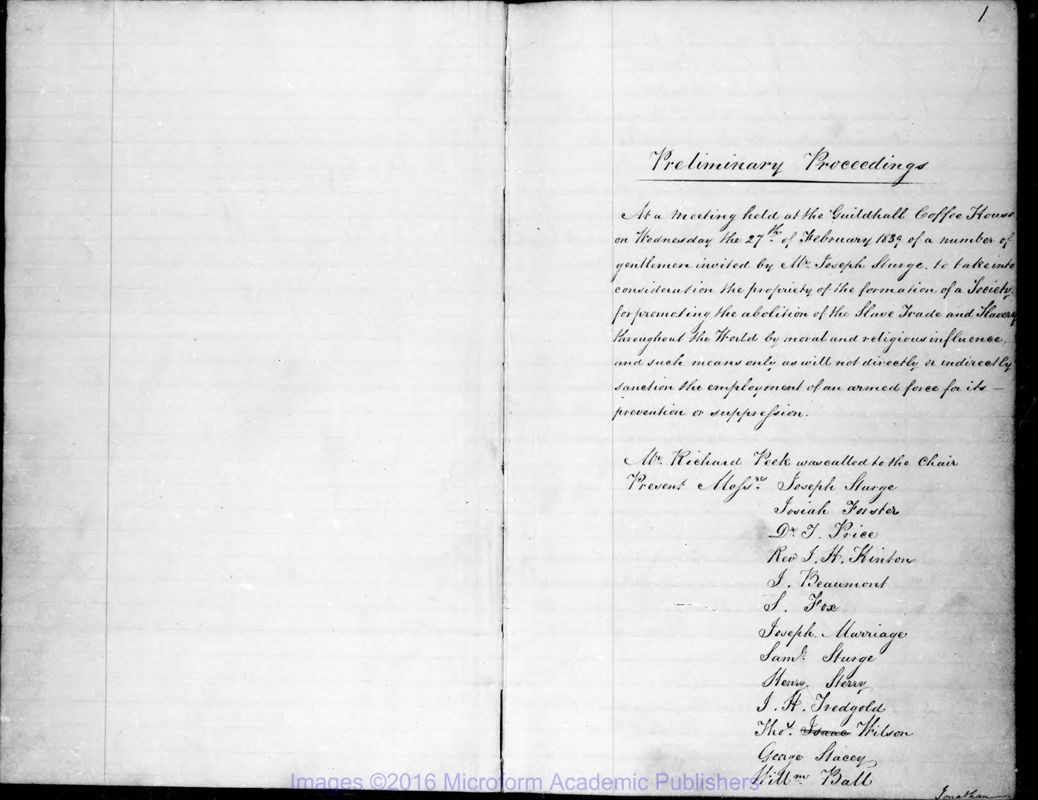 1
Preliminary Proceedings
At a Meeting held at the Guildhall Coffee House
on Wednesday the 27th of February 1839 of a number of
gentlemen invited by Mr Joseph Sturge, to take into
consideration the propriety of the formation of a Society,
for promoting the abolition of the Slave Trade and Slavery
throughout the World by moral and religious influence,
and such means only as will not directly or indirectly
sanction the employment of an armed force for its —
prevention or suppression.
Mr Richard Peek was called to the Chair
Present Messrs Joseph Sturge
Josiah Forster
Dr T. Price
Rev J. H. Hinton
J. Beaumont
S. Fox
Joseph Marriage
Saml Sturge
Henry Sterry
J. H. Tredgold
Thos Isaac Wilson
George Stacey
Willm Ball
Jonathan
Images ©2016 Microform Academic Publishers